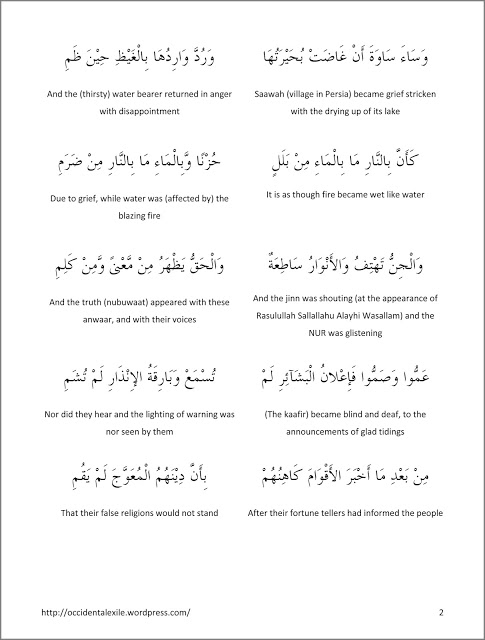 وَسَاءَ سَاوَةَ أَنْ غَاضَتْ بُحَيْرَتُهَا
وَرُدَّ وَارِدُهَا بِالْغَيْظِ حِيْنَ ظَمِ
Saawah (village in Persia) became grief stricken
with the drying up of its lake
And the (thirsty) water bearer returned in anger
with disappointment
كَأَنَّ بِالنَّارِ مَا بِالْمَاءِ مِنْ بَلَلٍ
حُزْنًا وَّبِالْمَاءِ مَا بِالنَّارِ مِنْ ضَرَمِ
It is as though fire became wet like water
Due to grief, while water was (affected by) the
blazing fire
وَالْجِنُّ تَهْتِفُ وَالأَنْوَارُ سَاطِعَةٌ
وَالْحَقُّ يَظْهَرُ مِنْ مَّعْنىً وَّمِنْ كَلِمِ
And the jinn was shouting (at the appearance of
Rasulullah Sallallahu Alayhi Wasallam) and the
NUR was glistening
And the truth (nubuwaat) appeared with these
anwaar, and with their voices
عَمُّوا وَصَمُّوا فَإِعْلانُ الْبَشَآئِرِ لَمْ
تُسْمَعْ وَبَارِقَةُ الإِنْذَارِ لَمْ تُشَمِ
(The kaafir) became blind and deaf, to the
announcements of glad tidings
Nor did they hear and the lighting of warning was
nor seen by them
مِنْ بَعْدِ مَا أَخْبَرَ الأَقْوَامَ كَاهِنُهُمْ
بِأَنَّ دِيْنَهُمُ الْمُعَوَّجَ لَمْ يَقُمِ
After their fortune tellers had informed the people
That their false religions would not stand
http://occidentalexile.wordpress.com/
2